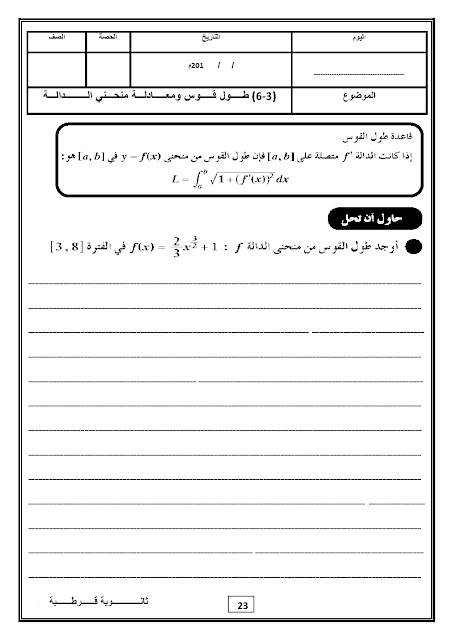 اليوم التاريخ الحصة الصف
/ / 201م
الموضوع (6-3) طــول قــوس ومعـادلــة منحنـي الـــــدالــة
قاعدة طول القوس
إذا كانت الدالة f′ متصلة على [a, b] فإن طول القوس من منحنى y = f(x) في [a, b] هو:
L = ∫_a^b √(1 + (f′(x))²) dx
حاول أن تحل
أوجد طول القوس من منحنى الدالة f : f(x) = 2/3 x^(3/2) + 1 في الفترة [3 , 8]
ثانـــــويــة قــرطـــبــة
23